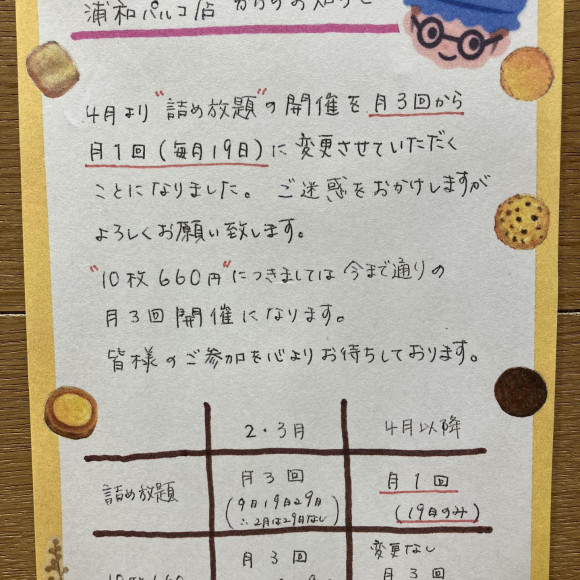 浦和パルコ店 からのお知らせ
4月より"詰め放題"の開催を月3回から
月1回(毎月19日)に変更させていただく
ことになりました。ご迷惑をおかけしますが
よろしくお願い致します。
"10枚660円"につきましては今まで通りの
月3回開催になります。
皆様のご参加を心よりお待ちしております。
2・3月 4月以降
詰め放題
月3回
(9日19日29日
∴2月は29日なし)
月1回
(19日のみ)
10枚660
月3回
変更なし
月3回